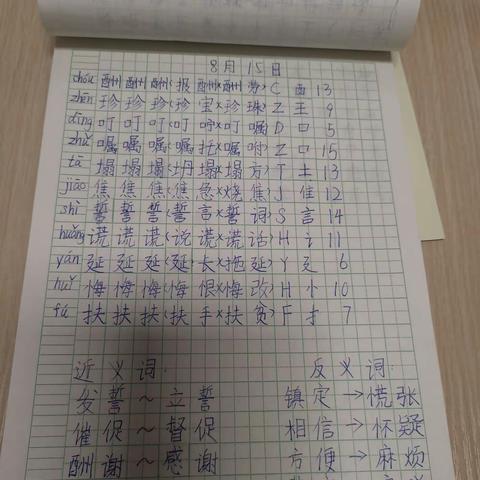 8月15日
chóu 酬 酬 酬(报酬)(酬劳) C 酉 13
zhēn 珍 珍 珍(珍宝)(珍珠) Z 王 9
dīng 叮 叮 叮(叮咛)(叮嘱) D 口 5
zhǔ 嘱 嘱 嘱(嘱托)(嘱咐) Z 口 15
tā 塌 塌 塌(坍塌)(塌方) T 土 13
jiāo 焦 焦 焦(焦急)(烧焦) J 隹 12
shì 誓 誓 誓(誓言)(誓词) S 言 14
huǎng 谎 谎 谎(说谎)(谎话) H 讠 11
yán 延 延 延(延长)(拖延) Y 廴 6
huǐ 悔 悔 悔(悔恨)(悔改) H 忄 10
fú 扶 扶 扶(扶手)(扶贫) F 扌 7
近义词: 反义词:
发誓~立誓 镇定→慌张
催促~督促 相信→怀疑
酬谢~感谢 方便→麻烦